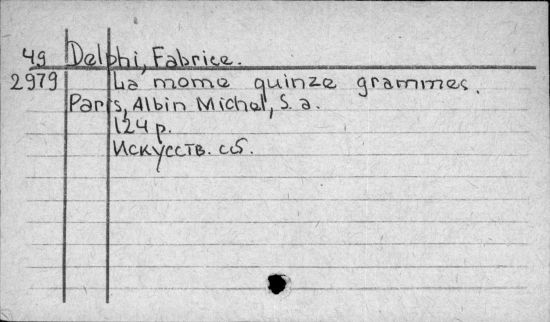 49 Delphi, Fabrice.
2979 La mome quinze grammes.
Paris, Albin Michel, S. a.
124 p.
Искусств. сб.